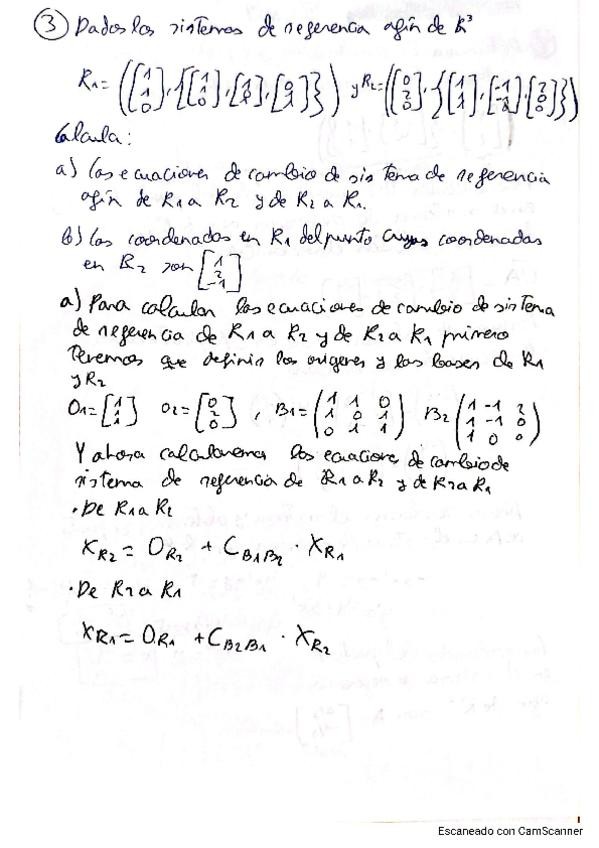 ③ Dados los sistemas de referencia afín de R³
R1 = ([1 1 0], {[1 1 0], [1 0 1], [0 1 1]}) y R2 = ([0 2 0], {[1 1 1], [-1 -1 0], [2 0 0]})
Calcula:
a) Las ecuaciones de cambio de sistema de referencia
afín de R1 a R2 y de R2 a R1.
b) Las coordenadas en R1 del punto cuyas coordenadas
en R2 son [1 2 -1]
a) Para calcular las ecuaciones de cambio de sistema
de referencia de R1 a R2 y de R2 a R1 primero
tenemos que definir los orígenes y las bases de R1
y R2
O1 = [1 1 1] O2 = [0 2 0], B1 = (1 1 0 1 0 1 0 1 1) B2 (1 -1 2 1 -1 0 1 0 0)
Y ahora calcularemos las ecuaciones de cambio de
sistema de referencia de R1 a R2 y de R2 a R1
· De R1 a R2
X_R2 = O_R2 + C_B1B2 · X_R1
· De R2 a R1
X_R1 = O_R1 + C_B2B1 · X_R2
Escaneado con CamScanner